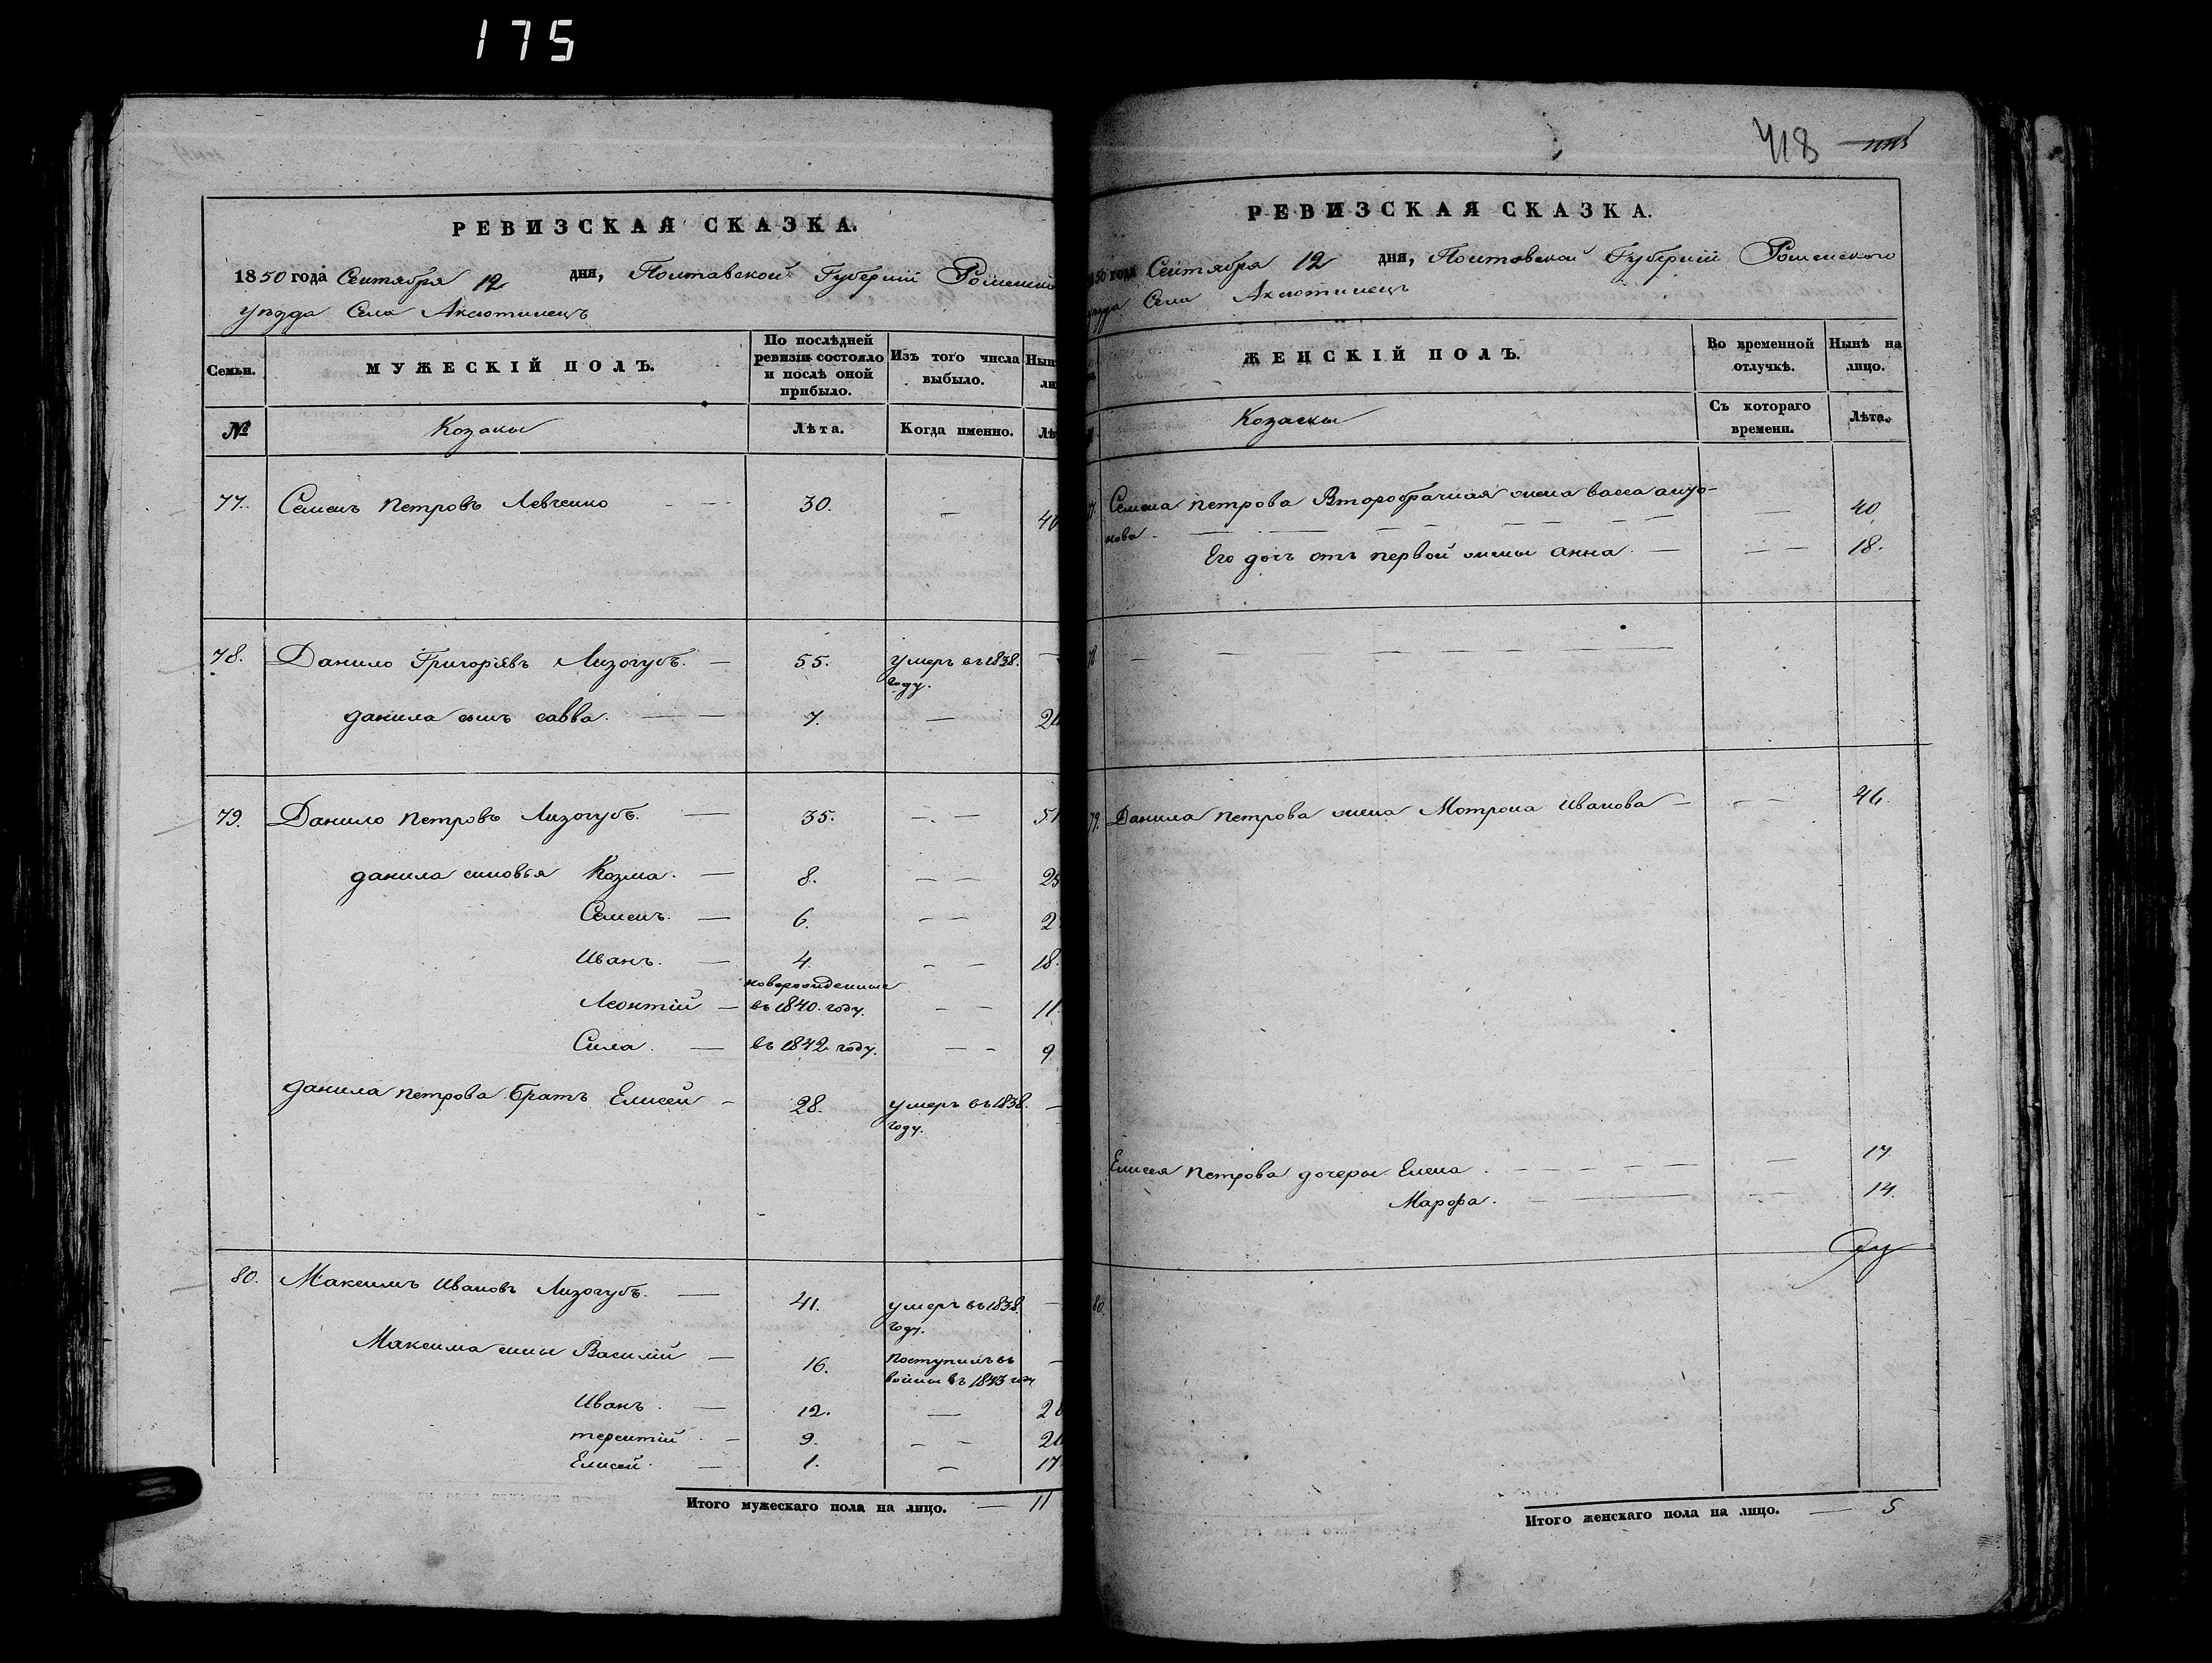 175
РЕВИЗСКАЯ СКАЗКА.
1850 года Сентября 12 дня, Полтавской Губерніи Роменско
уѣзда Села Аксютинецъ
Семьи. МУЖЕСКІЙ ПОЛЪ. По послѣдней ревизіи состояло и послѣ оной прибыло. Изъ того числа выбыло. Нын
№ Козаки Лѣта. Когда именно. Лѣ
77. Семенъ Петровъ Левченко — 30. — 40
78. Данило Григоріевъ Лизогубъ. — 55. умеръ въ 1838. году. —
данила сынъ савва. — 7. —
79. Данило Петровъ Лизогубъ. — 35. — 51
данила сыновья Козма. — 8. —
Семенъ. — 6. — 2
Иванъ. — 4. — 18.
новорожденныи
Леонтій — въ 1840. году. — 11.
Сила. — въ 1842 году. — 9
данила петрова братъ Елисей — 28. умеръ въ 1838. году. —
80. Максимъ Ивановъ Лизогубъ. — 41. умеръ въ 1838. году. —
Максима сыны Василій — 16. Поступилъ въ —
войны въ 1843 году
Иванъ. — 12. — 28
терентій. — 9. —
Елисей. — 1. — 17
Итого мужескаго пола на лицо. — 11
418
РЕВИЗСКАЯ СКАЗКА.
50 года Сентября 12 дня, Полтавской Губерніи Роменского
уѣзда Села Аксютинецъ
ЖЕНСКІЙ ПОЛЪ. Во временной отлучкѣ. Нынѣ на лицо.
Козачки Съ котораго времени. Лѣта.
77. Семена петрова Второбрачная жена васса анто-
нова. — 40
Его дочь отъ первой жены анна. — 18.
78. —
79. Данила петрова жена Мотрона Иванова — 46
Елисея петрова дочеры Елена. — 17
Марфа. — 14.
80.
Итого женскаго пола на лицо. — 5